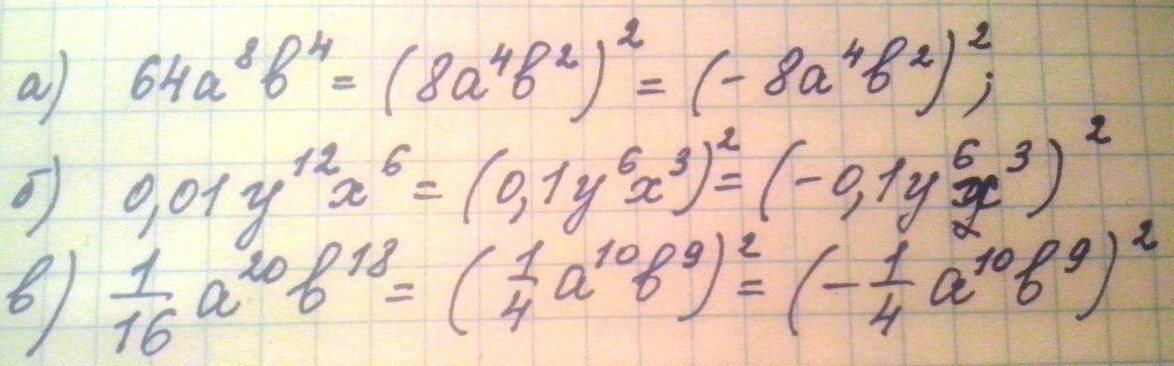 а) 64a⁸b⁴ = (8a⁴b²)² = (- 8a⁴b²)²;
б) 0,01y¹²x⁶ = (0,1y⁶x³)² = (-0,1y⁶x³)²
в) 1/16 a²⁰b¹⁸ = (1/4 a¹⁰b⁹)² = (-1/4 a¹⁰b⁹)²